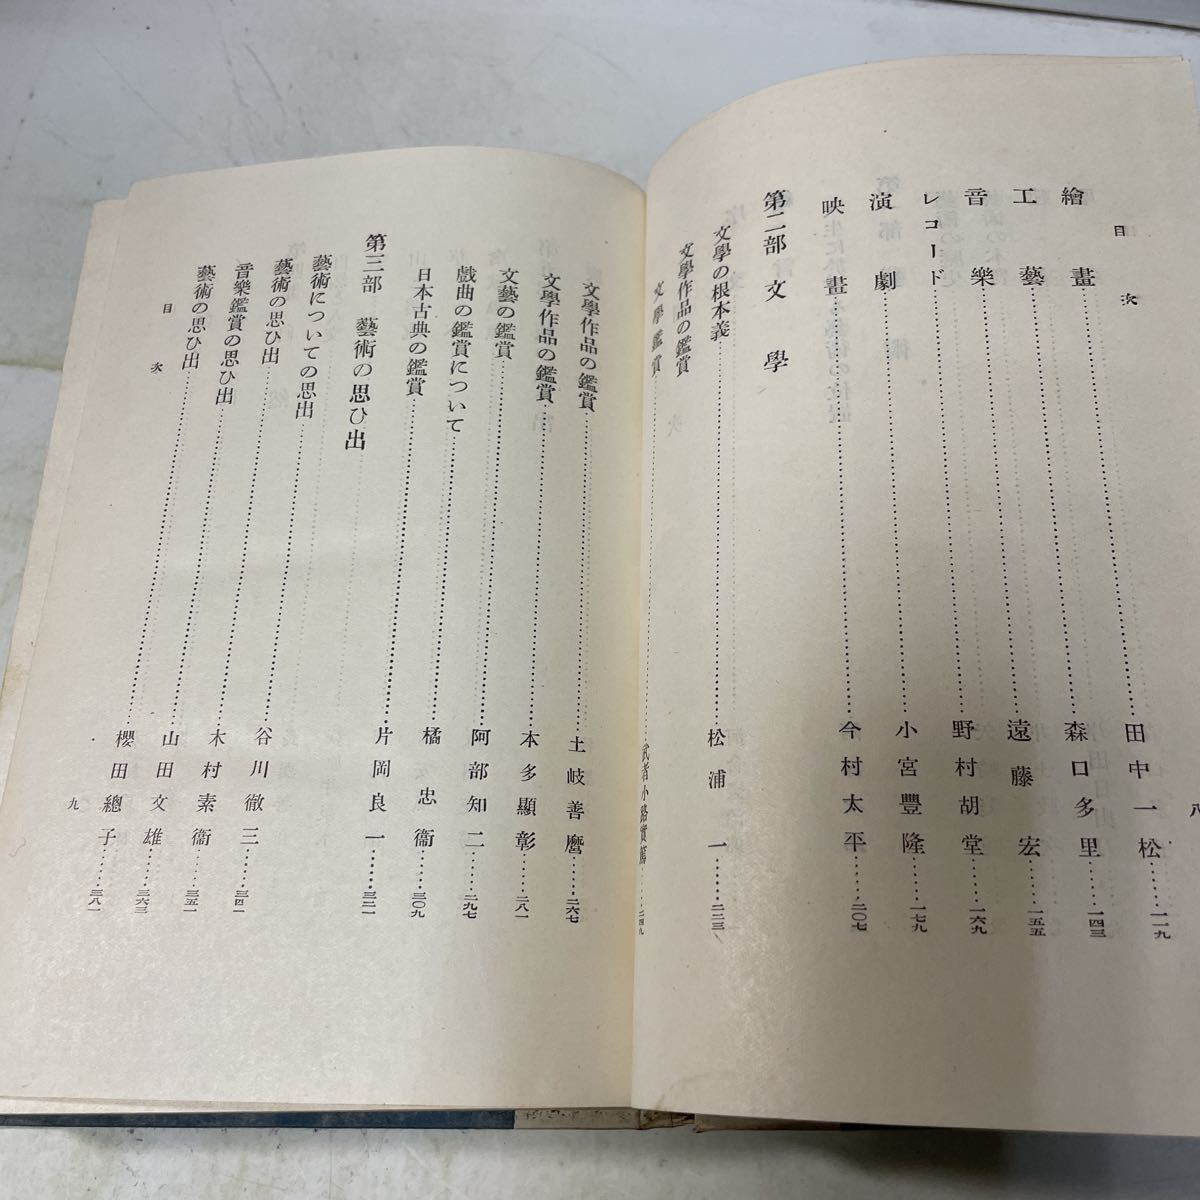 目次
八
繪畫……田中一松……一一九
工藝……森口多里……一四三
音樂……遠藤宏……一五五
レコード……野村胡堂……一六九
演劇……小宮豐隆……一七九
映畫……今村太平……二〇七
第二部 文學
文學の根本義……松浦一……二二三
文學作品の鑑賞
文學鑑賞……武者小路實篤……二四九
文學作品の鑑賞……土岐善麿……二六七
文學作品の鑑賞……本多顯彰……二八一
文藝の鑑賞……阿部知二……二九七
戲曲の鑑賞について……橘忠衞……三〇九
日本古典の鑑賞……片岡良一……三二一
第三部 藝術の思ひ出
藝術についての思出……谷川徹三……三四一
藝術の思ひ出……木村素衞……三五一
音樂鑑賞の思ひ出……山田文雄……三六三
藝術の思ひ出……櫻田總子……三八一
目次
九